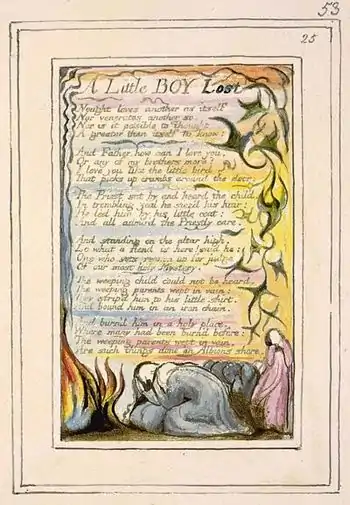 53
25
A Little BOY Lost
Nought loves another as itself
Nor venerates another so,
Nor is it possible to Thought
A greater than itself to know:
And Father, how can I love you,
Or any of my brothers more?
I love you like the little bird
That picks up crumbs around the door.
The Priest sat by and heard the child,
In trembling zeal he siez'd his hair:
He led him by his little coat:
And all admir'd the Priestly care.
And standing on the altar high,
Lo what a fiend is here! said he:
One who sets reason up for judge
Of our most holy Mystery.
The weeping child could not be heard,
The weeping parents wept in vain:
They strip'd him to his little shirt,
And bound him in an iron chain.
And burn'd him in a holy place,
Where many had been burn'd before:
The weeping parents wept in vain.
Are such things done on Albions shore.